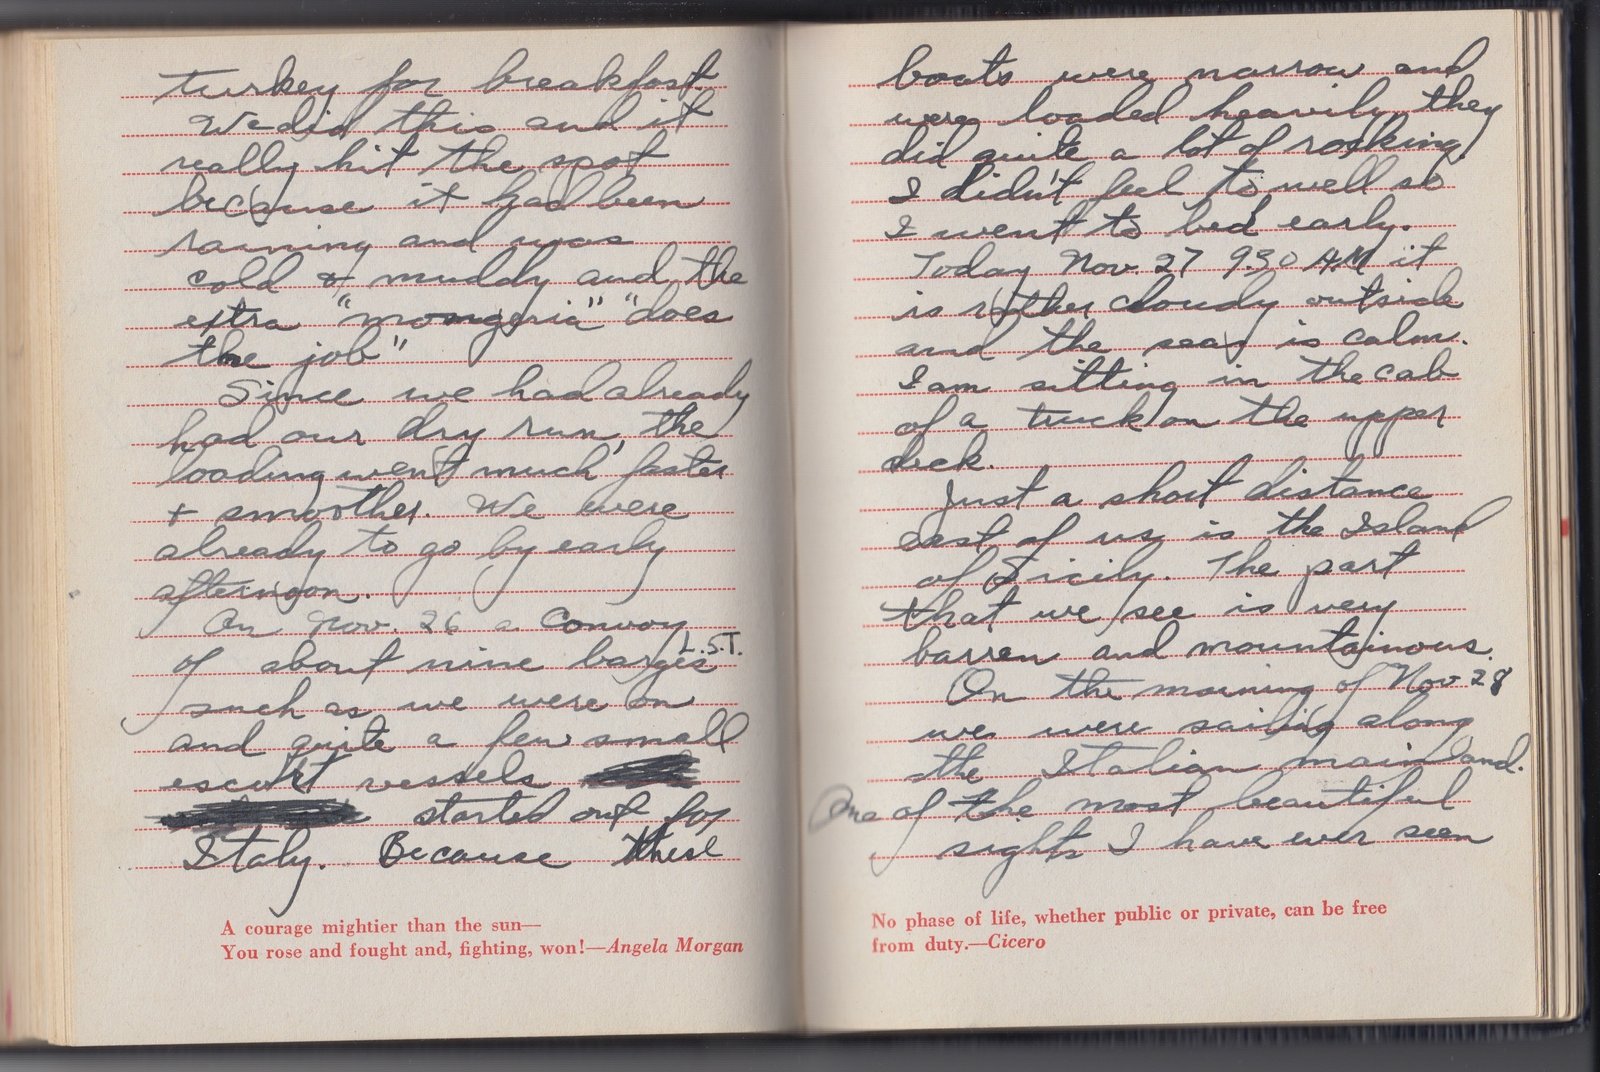 turkey for breakfast.
We did this and it
really hit the spot
because it had been
raining and was
cold & muddy and the
extra "momgeria" "does
the job"
Since we had already
had our dry run, the
loading went much faster
+ smoother. We were
already to go by early
afternoon.
On Nov. 26 a Convoy
of about nine barges L.S.T.
such as we were on
and quite a few small
escort vessels
started out for
Italy. Because these
A courage mightier than the sun—
You rose and fought and, fighting, won!—Angela Morgan
boats were narrow and
were loaded heavily they
did quite a lot of rocking.
I didn't feel to well so
I went to bed early.
Today Nov. 27 930 AM it
is rather cloudy outside
and the sea is calm.
I am sitting in the cab
of a truck on the upper
deck.
Just a short distance
east of us is the Island
of Sicily. The part
that we see is very
barren and mountainous.
On the morning of Nov 28
we were sailing along
the Italian mainland.
One of the most beautiful
sights I have ever seen
No phase of life, whether public or private, can be free
from duty.—Cicero